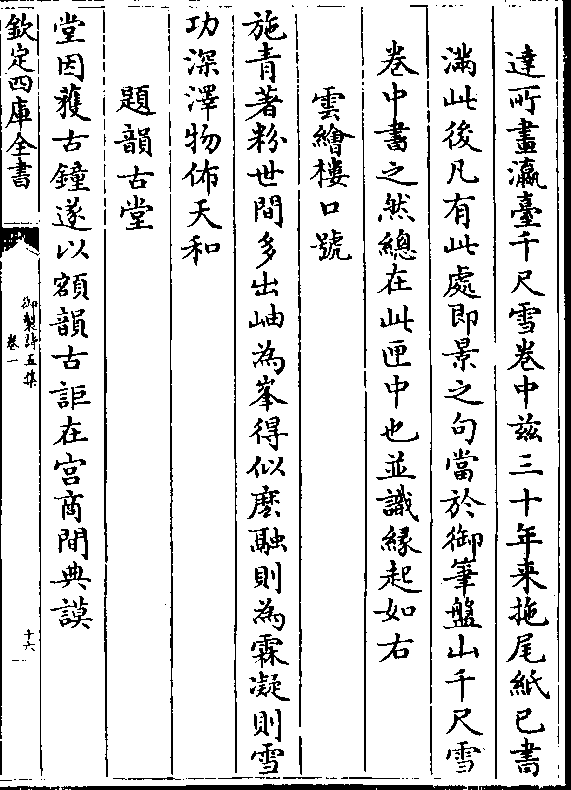 達所畫瀛臺千尺雪卷中兹三十年来拖尾紙已書
滿此後凡有此處即景之句當於御筆盤山千尺雪
卷中書之然總在此匣中也並識緣起如右
雲繪樓口號
施青著粉世間多出岫為峯得似麽融則為霖凝則雪
功深澤物佈天和
題韻古堂
堂因蒦古鐘遂以額韻古詎在宫商間典謨
欽定四庫全書
御製詩五集
卷一
十六